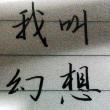 我叫
幻想